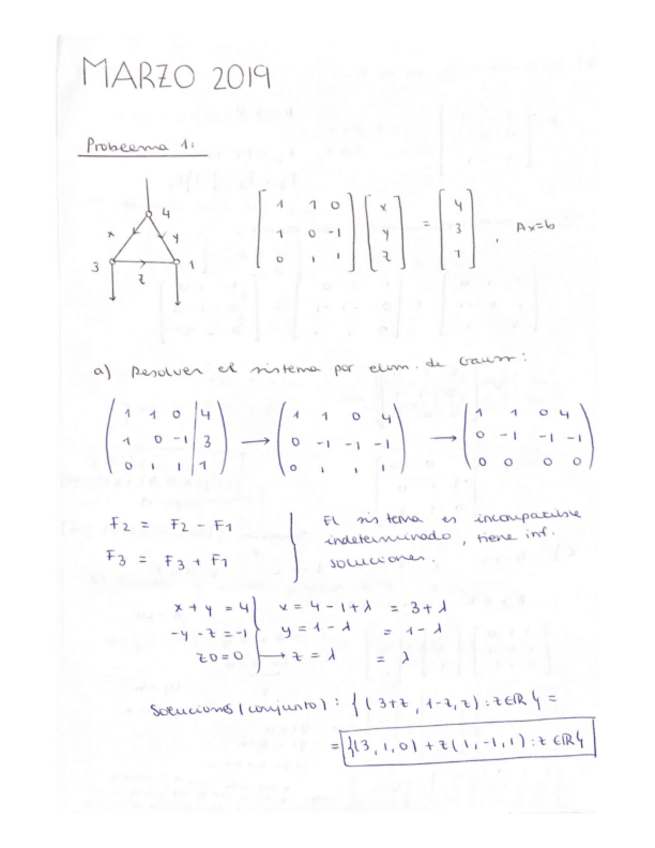 MARZO 2019
Problema 1:
4
x y
3 z 1
[1 1 0; 1 0 -1; 0 1 1] [x; y; z] = [4; 3; 1], Ax=b
a) Resolver el sistema por elim. de Gauss:
(1 1 0 | 4; 1 0 -1 | 3; 0 1 1 | 1) → (1 1 0 4; 0 -1 -1 -1; 0 1 1 1) → (1 1 0 4; 0 -1 -1 -1; 0 0 0 0)
F2 = F2 - F1
F3 = F3 + F1
El sistema es incompatible
indeterminado, tiene inf.
soluciones.
x + y = 4 x = 4 - 1 + λ = 3 + λ
-y - z = -1 y = 1 - λ = 1 - λ
z0 = 0 → z = λ = λ
Soluciones (conjunto): {(3+z, 1-z, z) : z ∈ ℝ} =
= {(3, 1, 0) + z(1, -1, 1) : z ∈ ℝ}